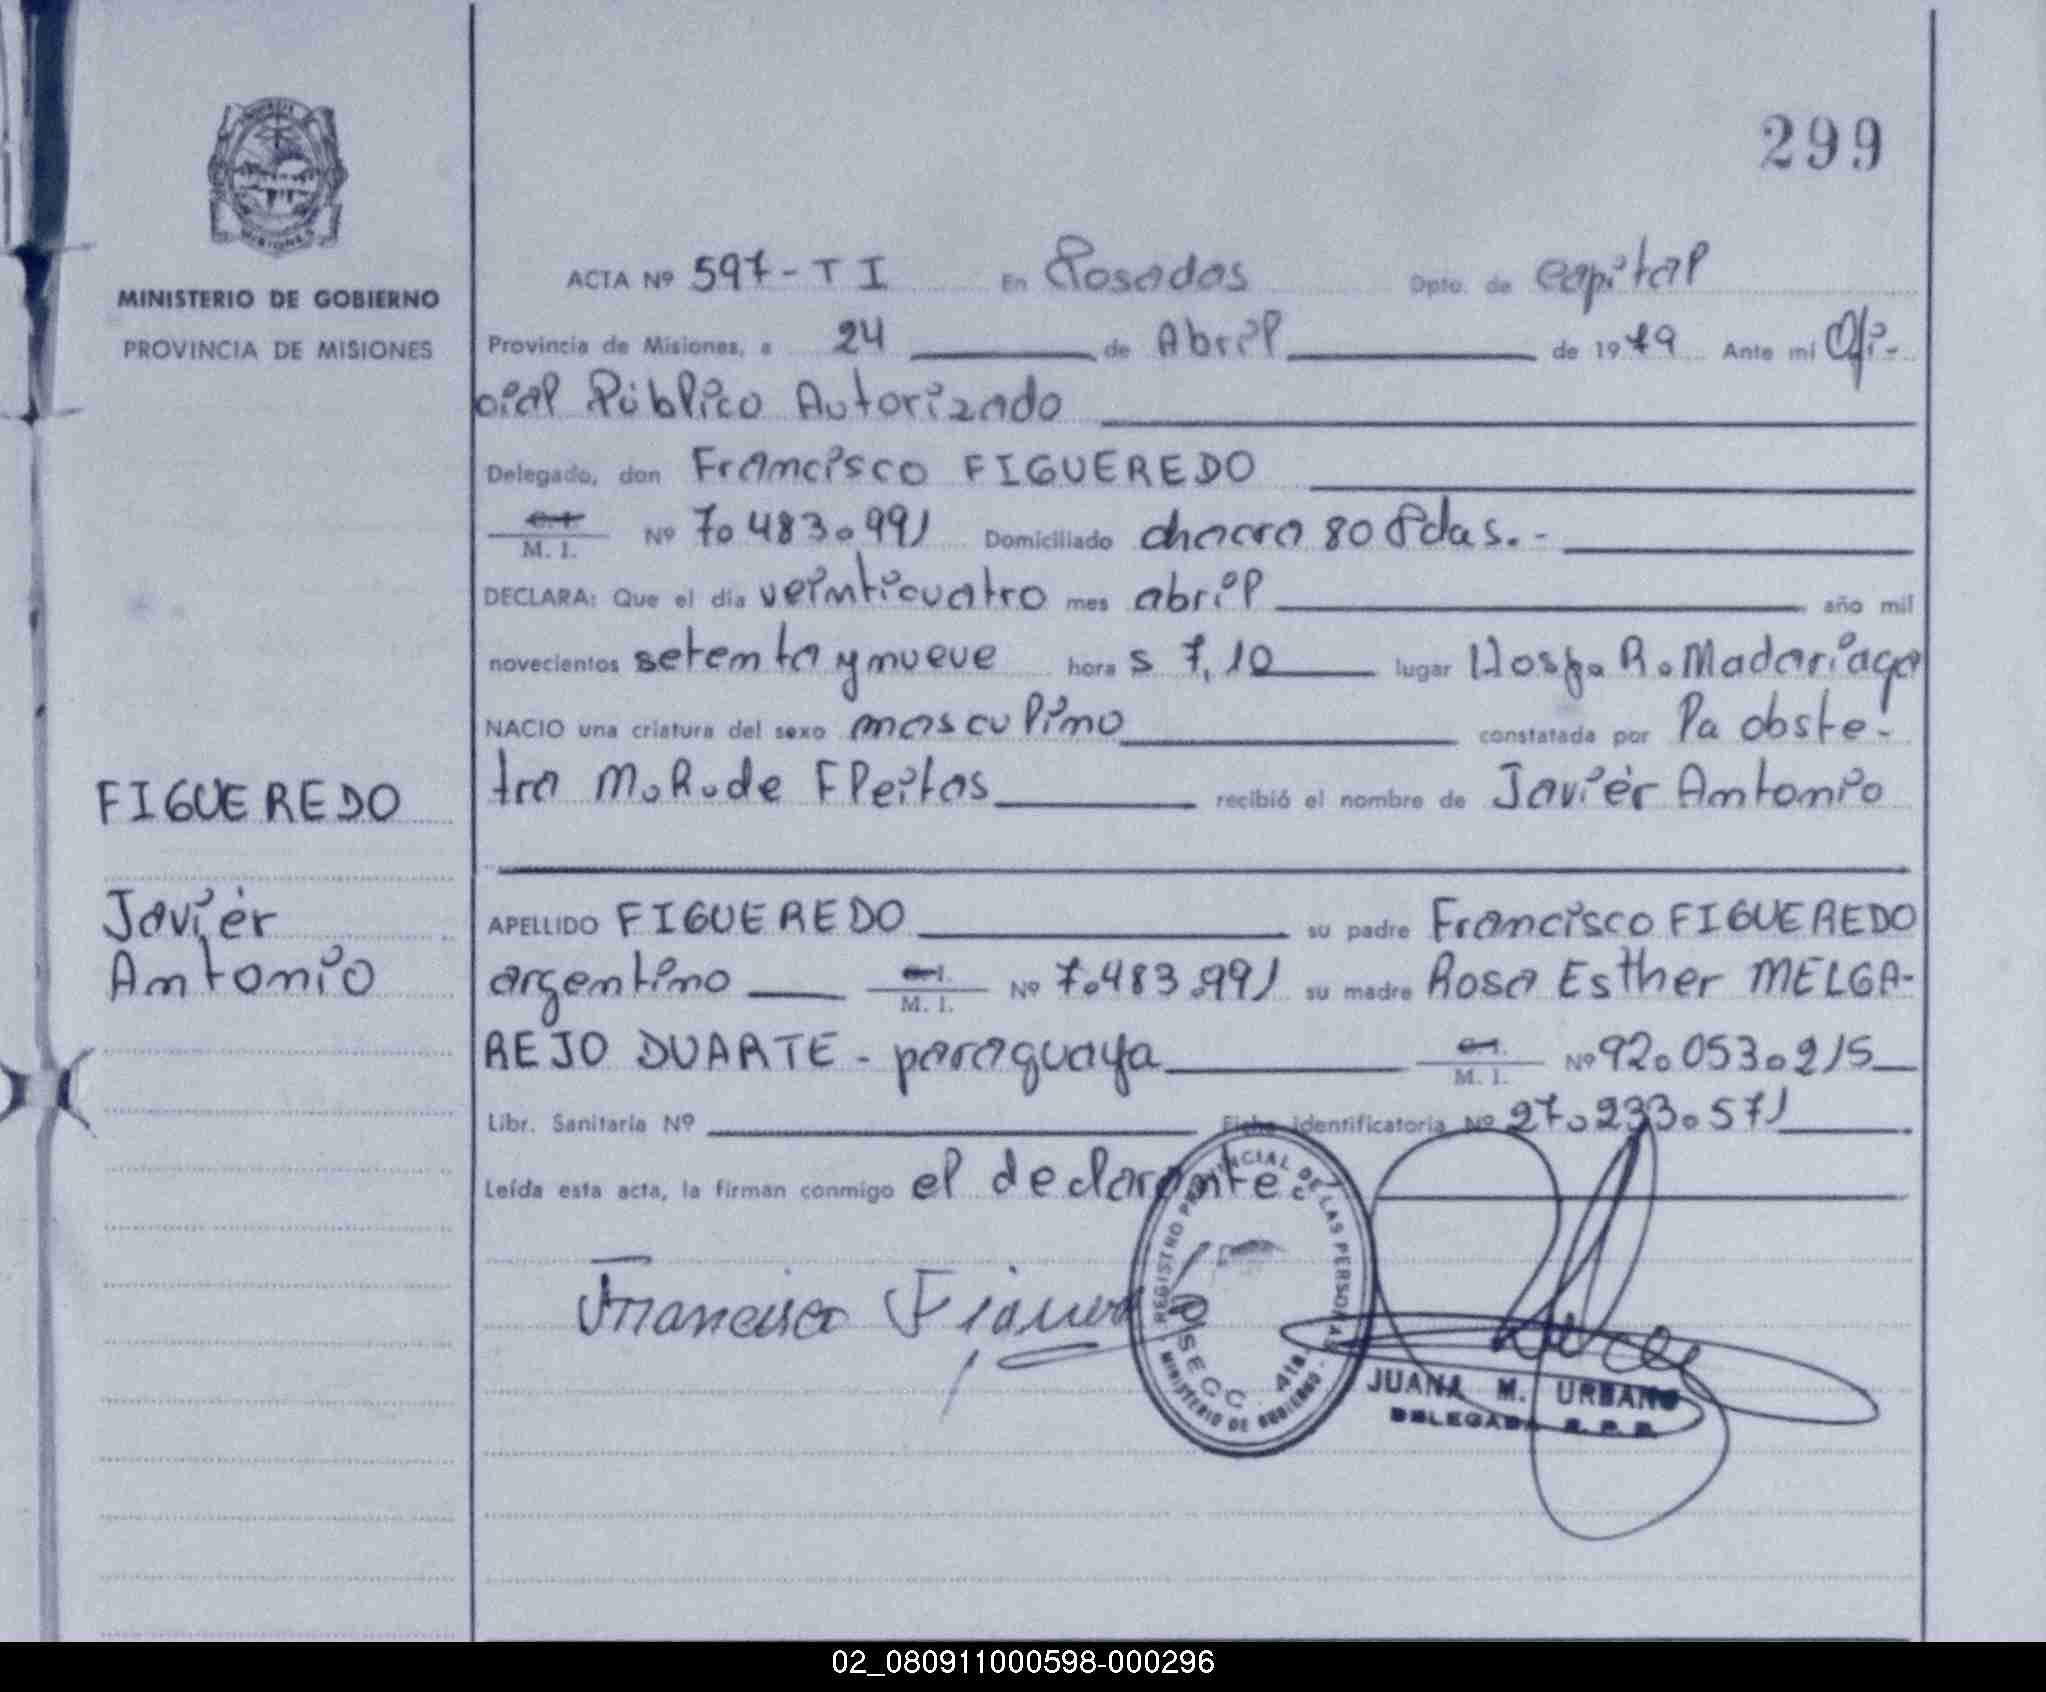 299
MISIONES
MINISTERIO DE GOBIERNO
PROVINCIA DE MISIONES
ACTA Nº 597-T I En Posadas Dpto. de capital
Provincia de Misiones, a 24 de Abril de 1979 Ante mi Ofi-
cial Público Autorizado
Delegado, don Francisco FIGUEREDO
M. I. Nº 7.483.991 Domiciliado chacra 80 Pdas.-
DECLARA: Que el día veinticuatro mes abril año mil
novecientos setenta y nueve hora s 7,10 lugar Hosp. R. Madariaga
NACIO una criatura del sexo masculino constatada por la obste-
tra M.R. de Fleitas recibió el nombre de Javiér Antonio
FIGUEREDO
Javiér
Antonio
APELLIDO FIGUEREDO su padre Francisco FIGUEREDO
argentino M. I. Nº 7.483.991 su madre Rosa Esther MELGA-
REJO DUARTE - paraguaya M. I. Nº 92.053.215
Libr. Sanitaria Nº Ficha identificatoria Nº 27.233.571
Leída esta acta, la firman conmigo el declarante.
Francisco
REGISTRO PROVINCIAL DE LAS PERSONAS
MINISTERIO DE GOBIERNO
SECC. 4ta.
JUANA M. URBANO
DELEGADA R. P. P.
02_080911000598-000296